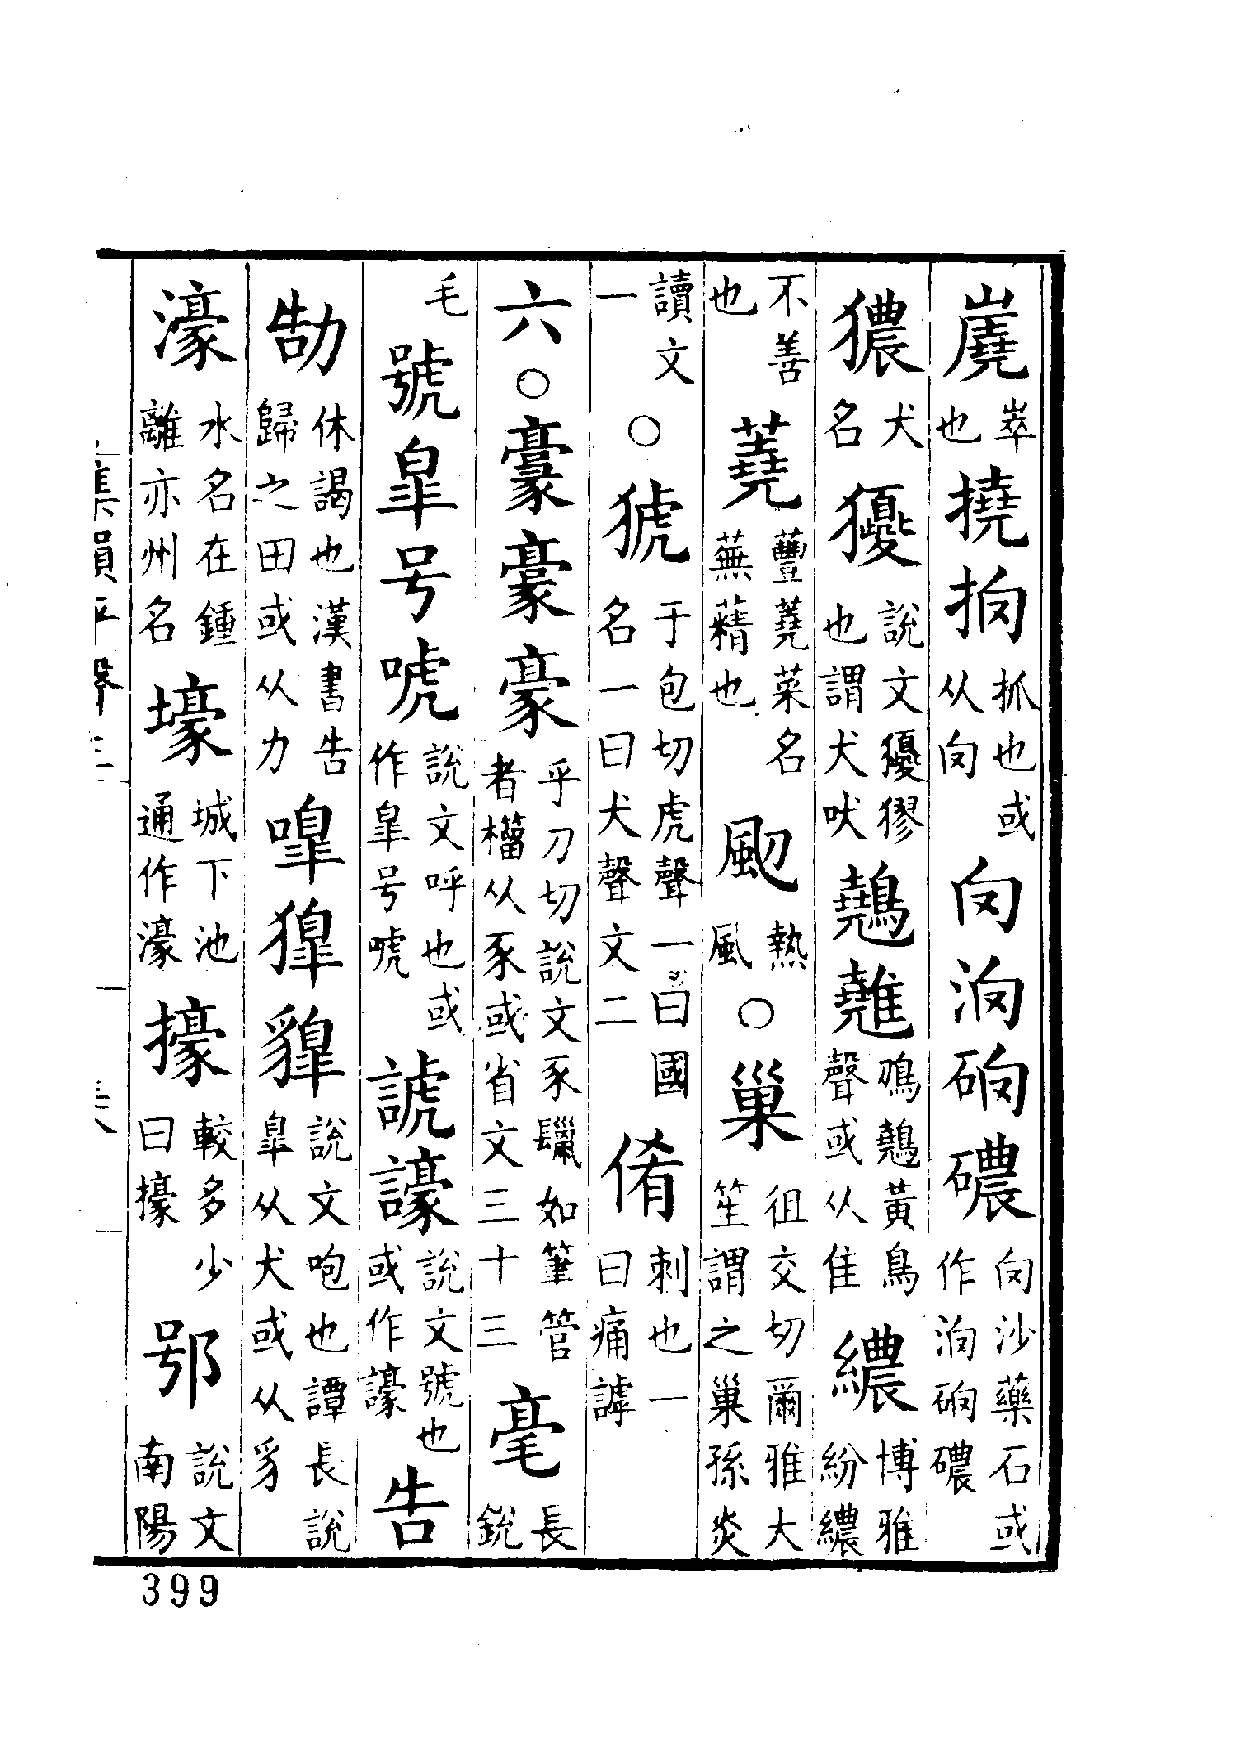 嶤崒也撓抓也或从囟硇䃩囟沙藥石或作硇䃩
獿犬名獿說文獿㺒也謂犬吠鳭黃鳥聲或从隹繷博雅紛繷
不善也蕘蘴蕘菜名蕪蔳也䫸熱風○巢徂交切爾雅大笙謂之巢孫炎
讀文一○猇于包切虎聲一曰國名一曰犬聲文二倄刺也一曰痛謼
六○豪乎刀切說文豕鬣如筆管者㰜从豕或省文三十三毫長銳
毛號皐号唬說文呼也或作皐号唬諕譹說文號也或作譹告
勂休謁也漢書告歸之田或从力嘷獋貚說文咆也譚長說皐从犬或从豸
濠水名在鍾離亦州名壕城下池通作濠㩝較多少曰㩝鄂說文南陽
集韻平聲三
399